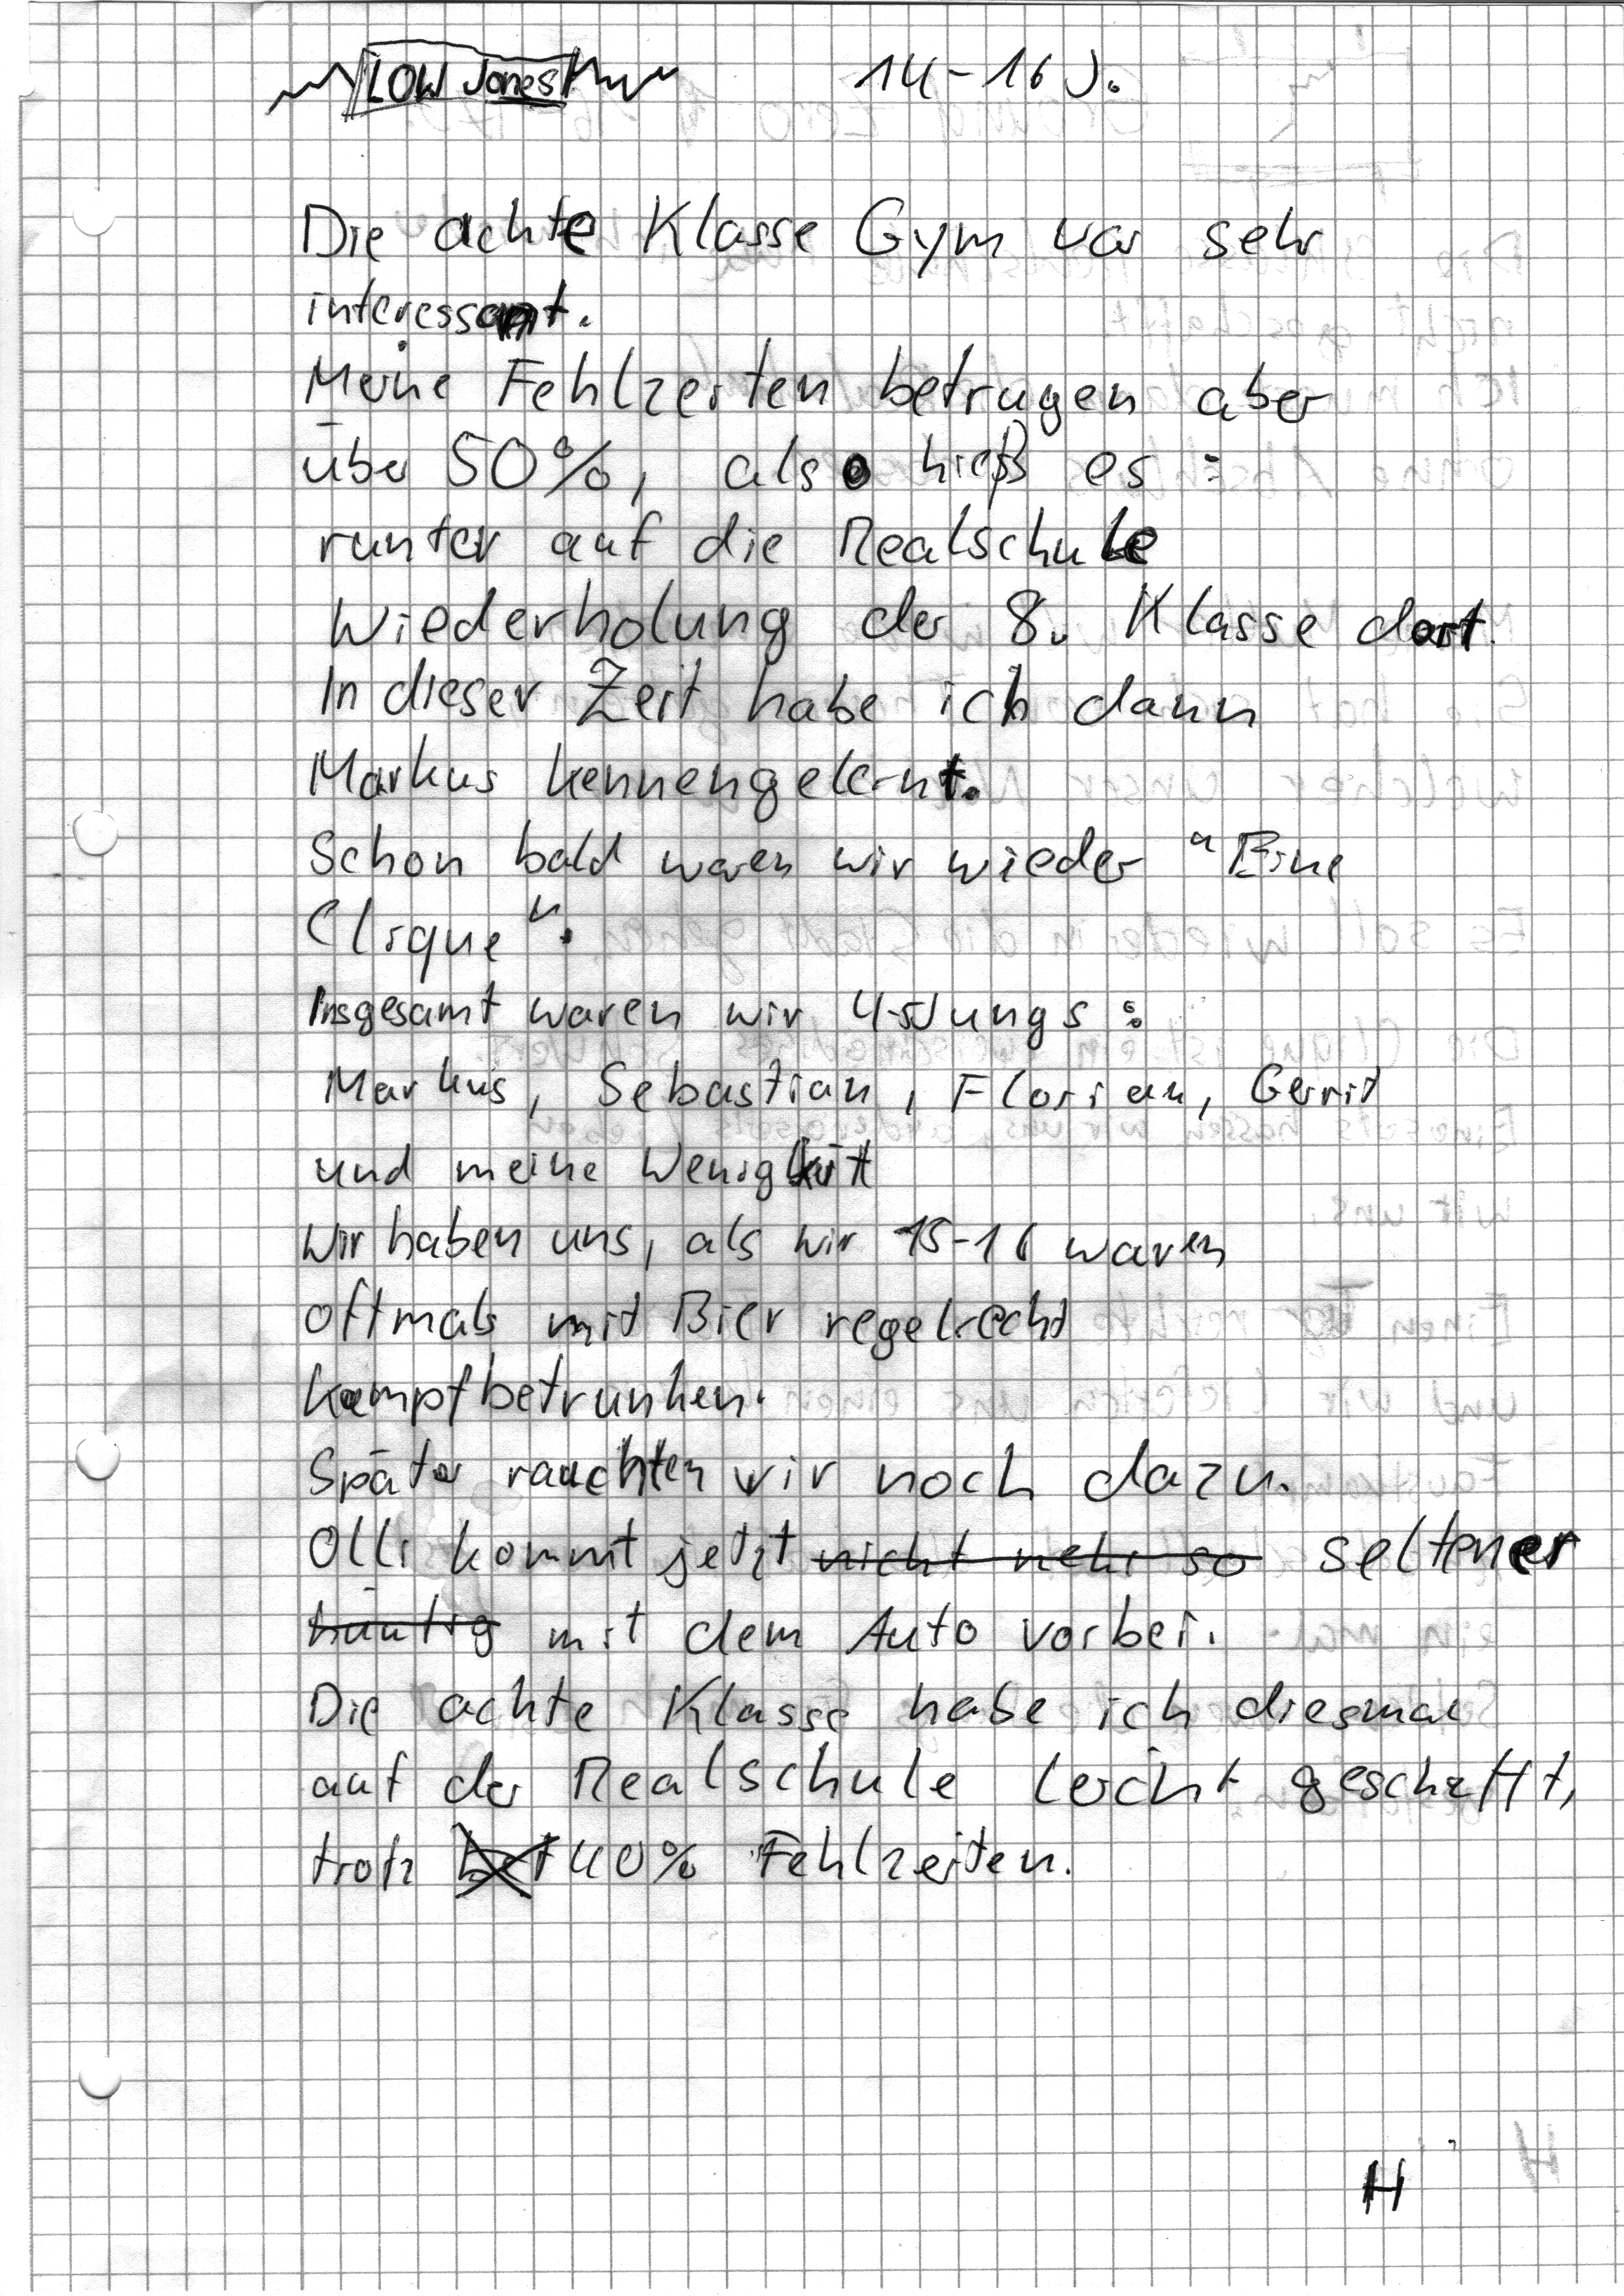 LOW Jones 14-16 J.
Die achte Klasse Gym war sehr
interessant.
Meine Fehlzeiten betrugen aber
über 50%, also hieß es:
runter auf die Realschule
Wiederholung der 8. Klasse dort.
In dieser Zeit habe ich dann
Markus kennengelernt.
Schon bald waren wir wieder "Eine
Clique".
Insgesamt waren wir 4-5 Jungs:
Markus, Sebastian, Florian, Gerrit
und meine Wenigkeit
Wir haben uns, als wir 15-16 waren
oftmals mit Bier regelrecht
kampfbetrunken.
Später rauchten wir noch dazu.
Olli kommt jetzt nicht mehr so seltener
häufig mit dem Auto vorbei.
Die achte Klasse habe ich diesmal
auf der Realschule leicht geschafft,
trotz 40% Fehlzeiten.
H